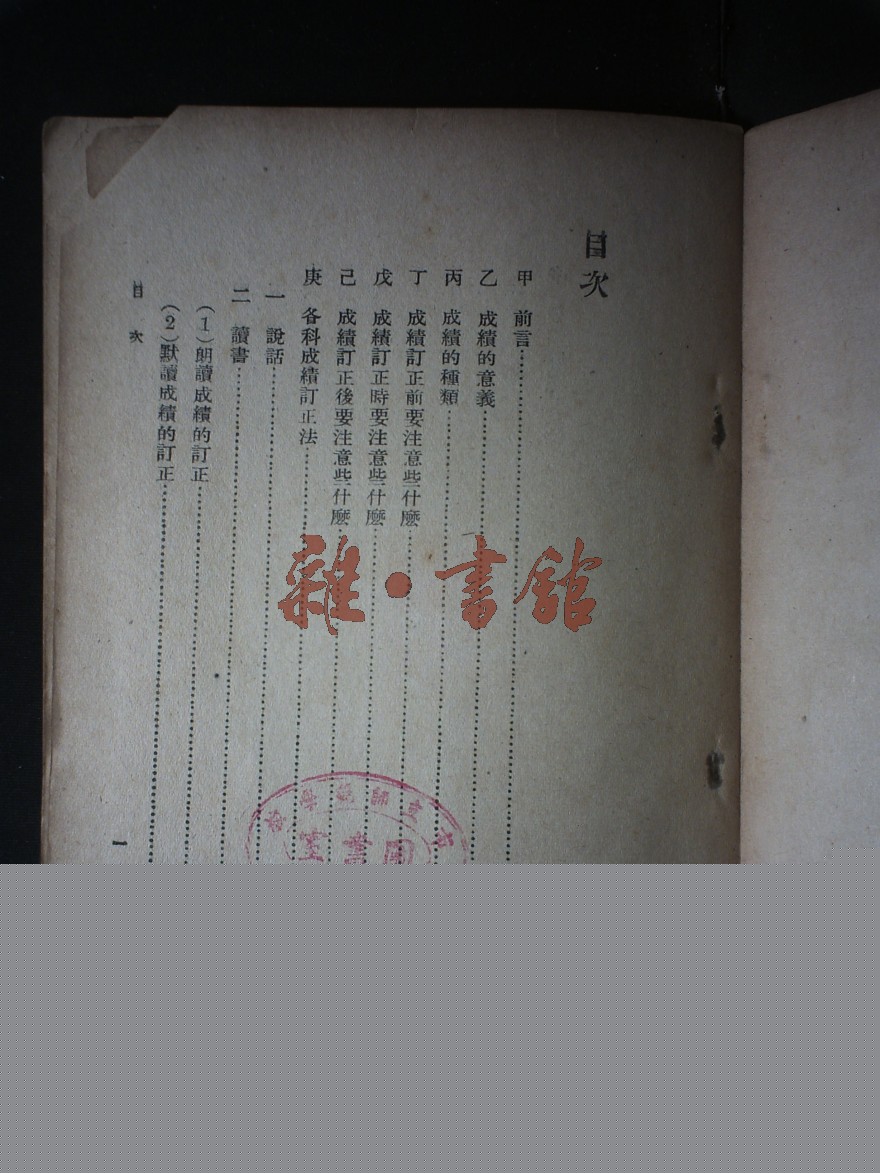 目次
甲　前言
乙　成績的意義
丙　成績的種類
丁　成績訂正前要注意些什麽
戊　成績訂正時要注意些什麽
己　成績訂正後要注意些什麽
庚　各科成績訂正法
一　說話
二　讀書
（1）朗讀成績的訂正
（2）默讀成績的訂正
目次
一
雜·書館